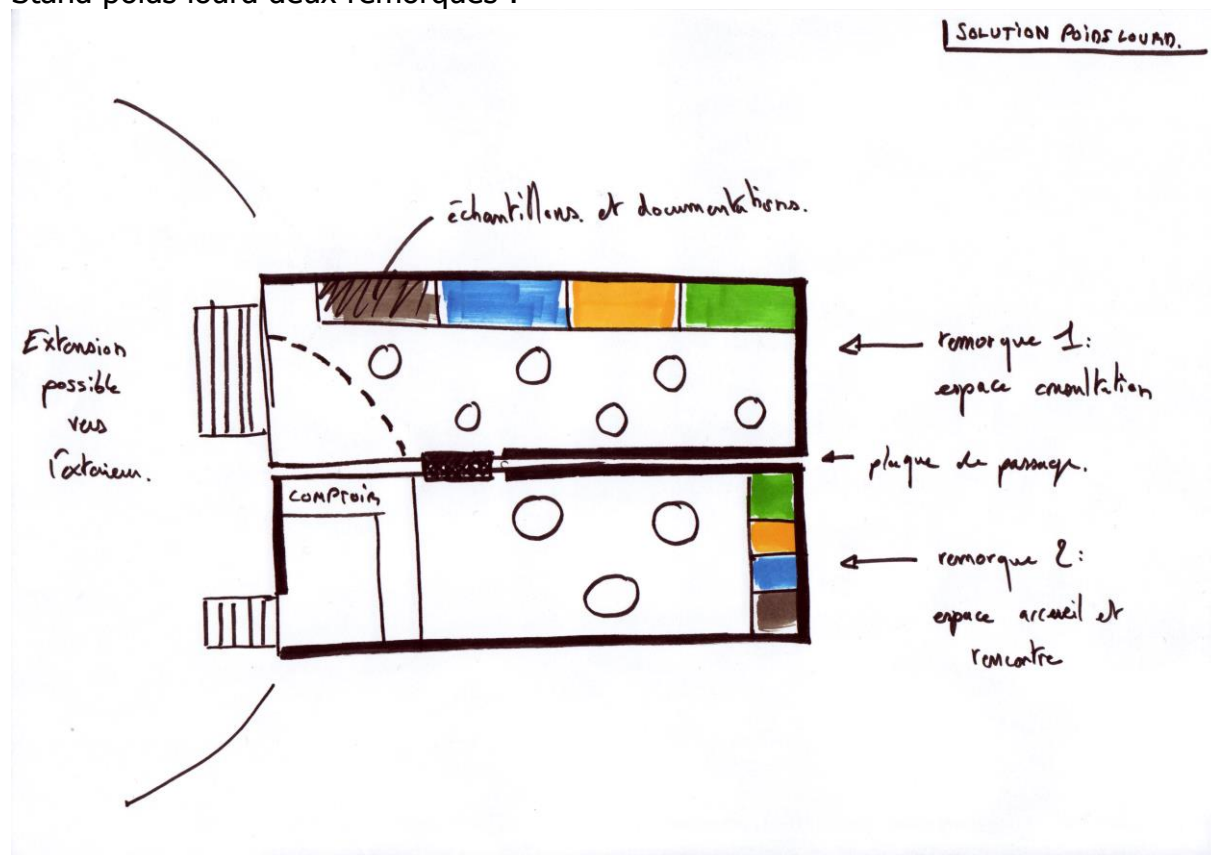 Stand poids lourd deux remorques :
SOLUTION POIDS LOURD.
échantillons. et documentations.
Extension
possible
vers
l'extérieur.
remorque 1:
espace consultation
plaque de passage.
COMPTOIR
remorque 2:
espace accueil et
rencontre